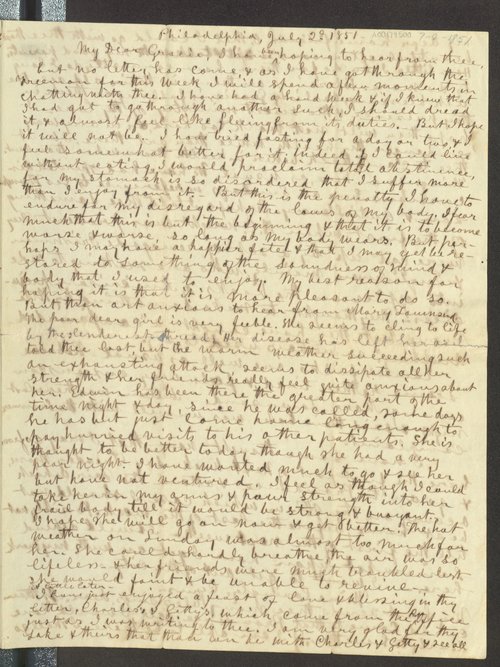 Philadelphia, July 2d 1851
My Dear Gracie, I have been hoping to hear from thee,
but no letter has come, & as I have got through the
Freeman for this week I will spend a few moments in
chatting with thee. I have had a hard week & if I knew that
I had got to go through another such, I should dread
it, & almost feel like fleeing from its duties. But I hope
it will not be. I have tried fasting for a day or two, &
feel somewhat better for it. Indeed if I could live
without eating I would proclaim total abstinence,
for my stomach is so disordered that I suffer more
than I enjoy from it. But this is the penalty I have to
endure for my disregard of the laws of my body. I fear
much that this is but the beginning & that it is to become
worse & worse so long as my body wears. But per-
haps I may have a happier fate & that I may yet be re-
stored to something of the soundness of mind &
body that I used to enjoy. My best reason for
hoping it is that it is more pleasant to do so.
But thou art anxious to hear from Mary Townsend
The poor dear girl is very feeble. She seems to cling to life
by the slenderest thread. Her disease has left her as I
told thee last but the warm weather succeeding such
an exhausting attack seems to dissipate all her
strength & her friends really feel quite anxious about
her. Edwin has been there the greater part of the
time night & day, since he was called, some days
he has but just come home long enough to
pay hurried visits to his other patients. She is
thought to be better today though she had a very
poor night. I have wanted much to go & see her
but have not ventured. I feel as though I could
take her in my arms & pour strength into her
frail body till it would be strong & buoyant.
I hope she will go on now & get better. The hot
weather on Sunday was almost too much for
her. She could hardly breathe the air was so
lifeless & her friends were much troubled lest
she would faint & be unable to revive.
I have just enjoyed a feast of love & blessing in thy
letter, Charles, & Gitty's which came from the office
just as I was writing to thee. I am very glad for thy
sake & theirs that thou can be with Charles & Gitty & see all